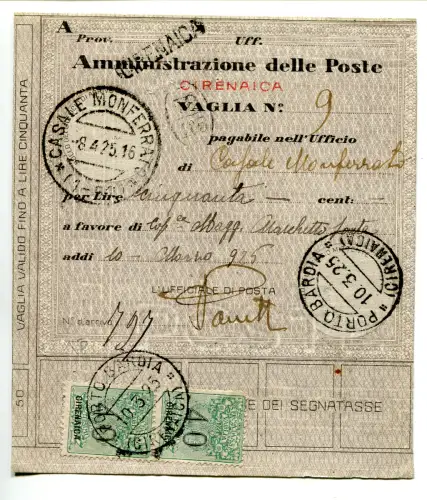 A
Prov. Uff.
CIRENAICA
Amministrazione delle Poste
CIRENAICA
VAGLIA N° 9
pagabile nell'Ufficio
di Casale Monferrato
per Lire cinquanta cent:
a favore di Magg.
addì 10 Marzo 925
L'UFFICIALE DI POSTA
797
CASALE MONFERRATO
8.4.25.16
PORTO BARDIA * (CIRENAICA) *
10.3.25
VAGLIA VALIDO FINO A LIRE CINQUANTA
50
PORTO BARDIA
10.3.25
DEI SEGNATASSE
CIRENAICA
40
CIRENAICA